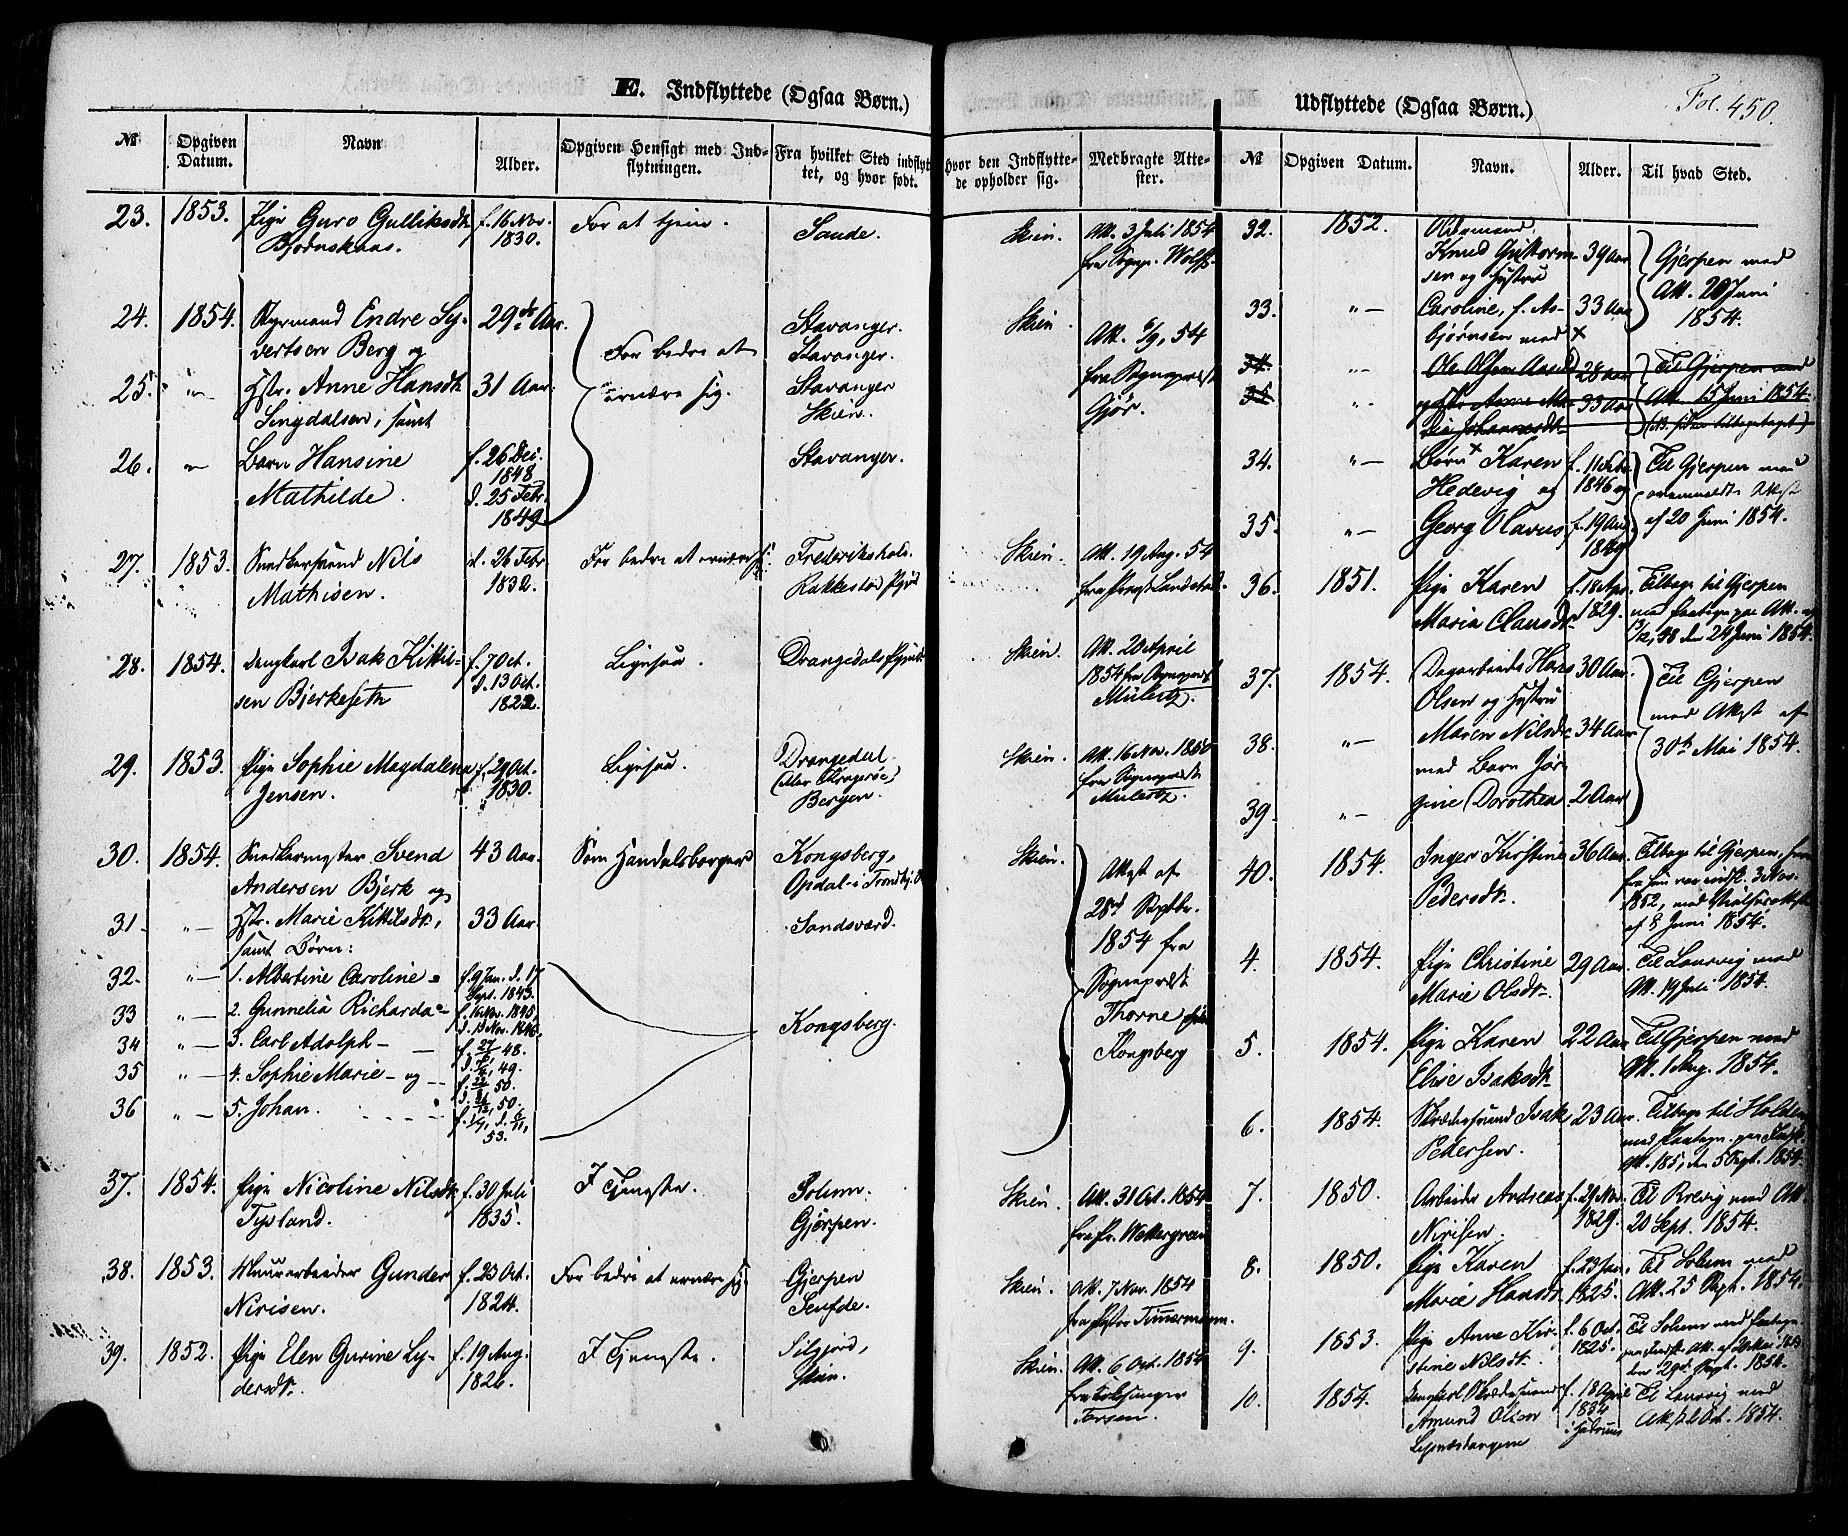 E. Indflyttede (Ogsaa Børn.)
Udflyttede (Ogsaa Børn.)
Fol. 450.
№
Opgiven Datum.
Navn
Alder.
Opgiven Hensigt med Ind-
flytningen.
Fra hvilket Sted indflyt
tet, og hvor født.
Hvor den Indflytte-
de opholder sig.
Medbragte Atte-
ster.
№
Opgiven Datum.
Navn.
Alder.
Til hvad Sted.
23. 1853. Pige Guro Gulliksdt. f. 16 Nov. For at tjene. Saude. Skien. Att. 3 Juli 1854
1830. fra Sognp. Wolff
24. 1854. Styrmand Endre Sy- 29 Aar. Stavanger. Skien. Att. 6/9, 54
vertsen Berg og For bedre at Stavanger. fra Sognepræst
25. "— Hstr. Anne Hansdt. 31 Aar. ernære sig. Stavanger
samt Skien.
26. "— Barn Hansine f. 26 Dec. Stavanger.
Mathilde. 1848
d. 25 Febr.
1849
27. 1853. Snedkersvend Nils d. 26 Febr. For bedre at ernære sig. Frederikshald. Skien. Att. 19 Aug. 54
Mathisen. 1832. Rakkestad fra Præst Landstad.
28. 1854. Isak Kittil- f. 7 Oct. Ligesaa. Drangedals Skien. Att. 20 April
sen Bjerkeseth d. 13 Oct. 1854 fra Sognepræst
1822. Mulertz.
29. 1853. Pige Sophie Magdalena f. 29 Oct. Ligesaa. Drangedal Skien. Att. 16 Nov. 1850
Jensen. 1830. Bergen. fra Sognepræst
Mulertz.
30. 1854. Snedkermester Svend 43 Aar. Som Handelsborger Kongsberg, Skien. Attest af
Andersen Bjerk og Opdal i Trondhj. 28de Septbr.
31. "— Hstr. Marie Kittilsdt., 33 Aar. Sandsværd. 1854 fra
samt Børn: Sognepræst
32. "— 1. Albertine Caroline f. 9 Jan. d. 17
Sept. 1843.
33 "— 2. Gunnelia Richarda f. 16 Nov. 1845, Kongsberg. Thorne
d. 15 Nov. 1846. Kongsberg
34 "— 3. Carl Adolph
35 "— 4. Sophie Marie - og
36 "— 5. Johan.
53.
37. 1854. Pige Nicoline Nilsdt. f. 30 Juli I Tjeneste. Solum. Skien. Att. 31 Oct. 1854
Tysland. 1835. Gjerpen. fra Pr. Wettergreen
38. 1853. Muurarbeider Gunder f. 23 Oct. For bedre at ernære sig Gjerpen Skien. Att. 7 Nov. 1854
Nirisen. 1824. fra Pastor Timmermann.
39. 1852. Pige Elen Gurine f. 19 Aug. I Tjeneste. Siljord, Skien. Att. 6 Oct. 1854
1826. Skien.
32. 1852. Oldermand
Knud Guttorm- 39 Aar Gjerpen med
sen og Hustru Att. 20 Juni
33. "— Caroline, f. As- 33 Aar 1854.
bjørnsen med ×
34. "— Ole Olsen 28 Aar Til Gjerpen med
35 "— Anne Ma- 33 Aar Att. 15 Juni 1854.
ria Johannesdt. (siden tilbagetaget)
34. "— Børn × Karen f. 11 Febr. Til Gjerpen med
Hedevig og 1846 og ovenmeldte Attest
35. "— Georg Olavus f. 19 af 20 Juni 1854.
1849
36. 1851. Pige Karen f. 18 Apr. Tilbage til Gjerpen
Maria Clausdt. 1829. med Paategn. paa Att. af
den 24 Juni 1854.
37. 1854. Dagarbeider Hans 30 Aar Til Gjerpen
Olsen og Hustru med Attest af
38. "— Maren Nilsdt. 34 Aar 30te Mai 1854.
med Barn Jør-
39. "— gine Dorothea 2 Aar
40. 1854. Inger Kirstine 36 Aar Tilbage til Gjerpen,
Pedersdt. fra hun var indk. 3 Nov.
1852, med
af 8 Juni 1854.
4. 1854. Pige Christine 29 Aar Til Laurvig med
Marie Olsdt. Att. 14 Juli 1854.
5. 1854. Pige Karen 22 Aar Til Gjerpen med
Elise Isaksdt. Att. 1 Aug. 1854.
6. 1854. Skræddersvend Isak 23 Aar. Tilbage til Holden
Pedersen. med Paategn. paa
den 5 Sept. 1854.
7. 1850. Arbeider Andreas f. 29 Nov. Til Brevig med Att.
Nirisen. 1829. 20 Sept. 1854.
8. 1850. Pige Karen f. 23 Jan. Til Solum med
Marie Hansdt. 1825. Att. 25 Sept. 1854.
9. 1853. Pige Anne Kir- f. 6 Oct. Til Solum med Paategn.
stine Nilsdt. 1825.
den 29de Sept. 1854.
10. 1854. Skræddersvend f. 18 April Til Laurvig med
Amund Olsen 1834 Oct. 1854.